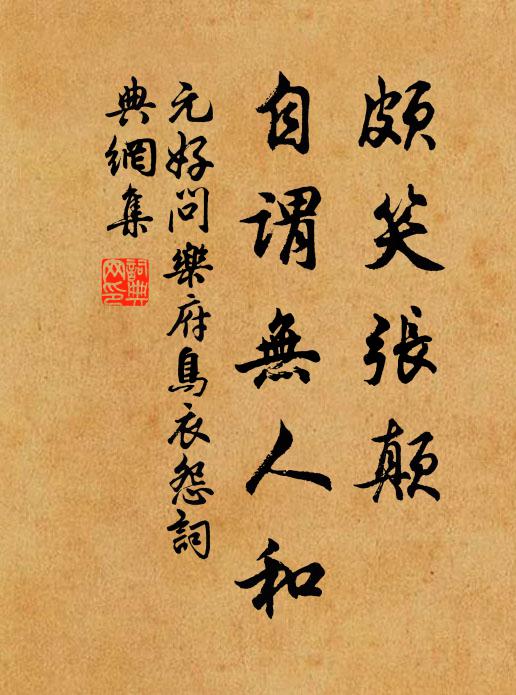 頗笑張顛
自謂無人和
元好問樂府烏衣怨詞
典網集
詞典網印